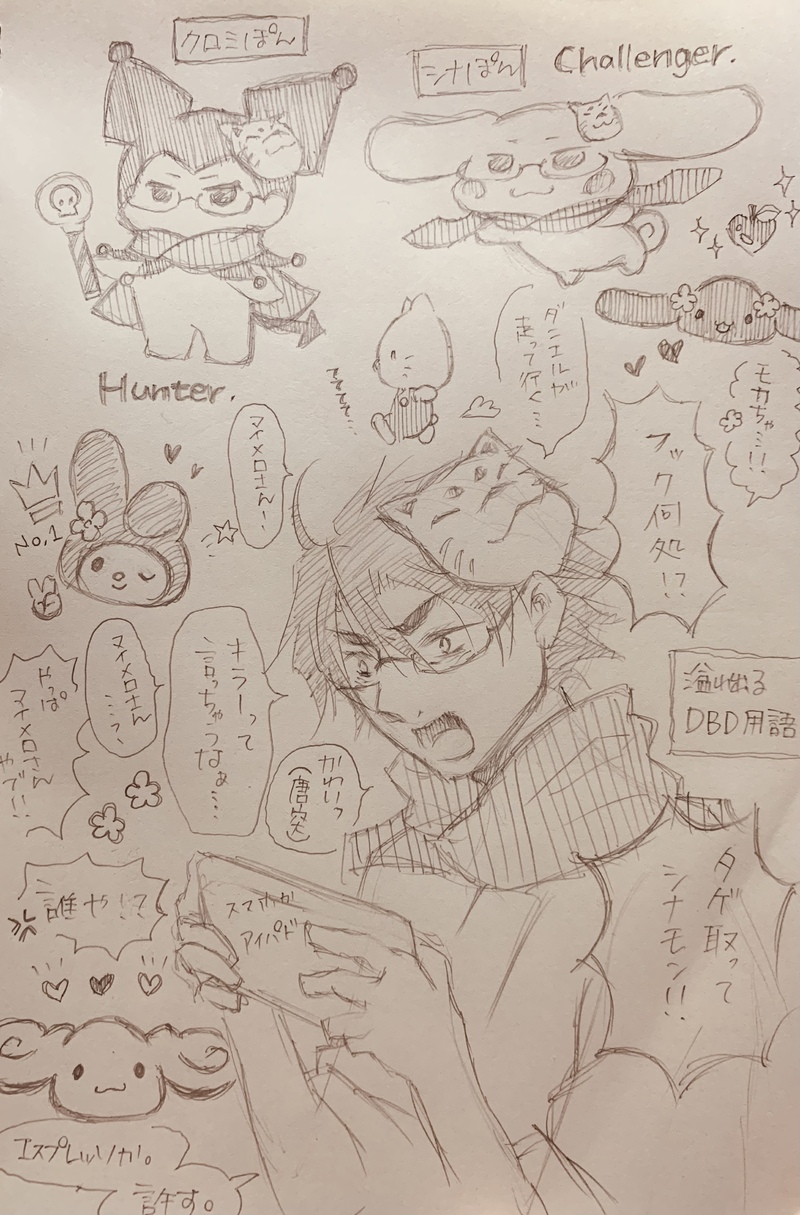 クロミぽん
シナぽん
Challenger.
Hunter.
ててててて…
ダニエルが
走って行く…
モカちゃ…!!
マイメロさんー
フック何処!?
No.1
マイメロさん
…っ、
やっぱ
マイメロさん
やで!!
キラーって
言っちゃうなぁ…
かわいっ
(唐突)
溢れ出る
DBD用語
誰や!?
スマホか
アイパド
タゲ取って
シナモン!!
エスプレッソか。
許す。